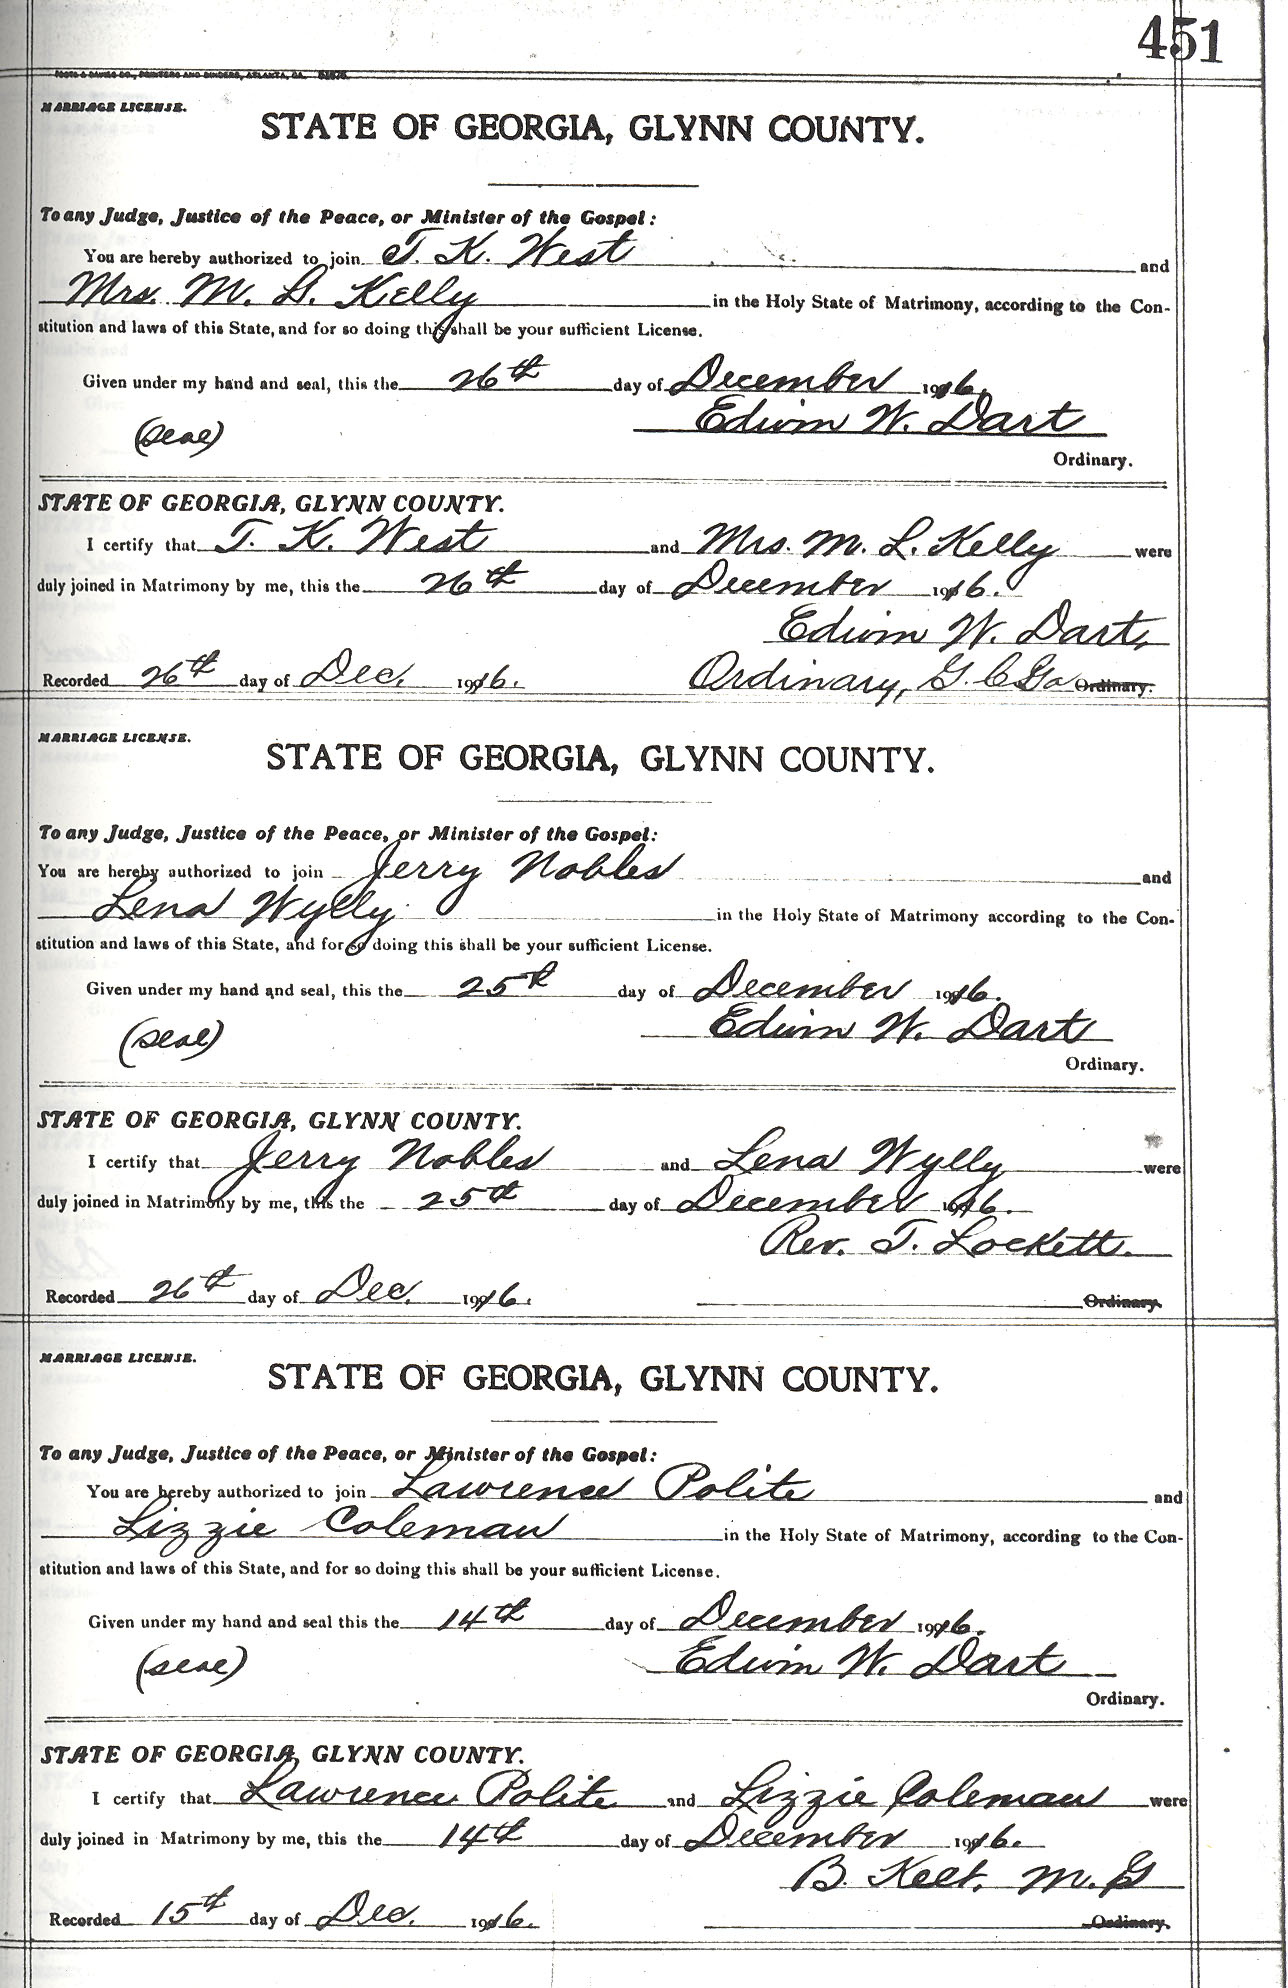 451
FOOTE & DAVIES CO., PRINTERS AND BINDERS, ATLANTA, GA.
MARRIAGE LICENSE.
STATE OF GEORGIA, GLYNN COUNTY.
To any Judge, Justice of the Peace, or Minister of the Gospel:
You are hereby authorized to join T. K. West and
Mrs. M. L. Kelly in the Holy State of Matrimony, according to the Con-
stitution and laws of this State, and for so doing this shall be your sufficient License.
Given under my hand and seal, this the 26th day of December 1916.
(seal) Edwin W. Dart
Ordinary.
STATE OF GEORGIA, GLYNN COUNTY.
I certify that T. K. West and Mrs. M. L. Kelly were
duly joined in Matrimony by me, this the 26th day of December 1916.
Edwin W. Dart,
Recorded 26th day of Dec. 1916. Ordinary, G. C. Ga Ordinary.
MARRIAGE LICENSE.
STATE OF GEORGIA, GLYNN COUNTY.
To any Judge, Justice of the Peace, or Minister of the Gospel:
You are hereby authorized to join Jerry Nobles and
Lena Wylly in the Holy State of Matrimony according to the Con-
stitution and laws of this State, and for so doing this shall be your sufficient License.
Given under my hand and seal, this the 25th day of December 1916.
(seal) Edwin W. Dart
Ordinary.
STATE OF GEORGIA, GLYNN COUNTY.
I certify that Jerry Nobles and Lena Wylly were
duly joined in Matrimony by me, this the 25th day of December 1916.
Rev. T. Lockett.
Recorded 26th day of Dec. 1916. Ordinary.
MARRIAGE LICENSE.
STATE OF GEORGIA, GLYNN COUNTY.
To any Judge, Justice of the Peace, or Minister of the Gospel:
You are hereby authorized to join Lawrence Polite and
Lizzie Coleman in the Holy State of Matrimony, according to the Con-
stitution and laws of this State, and for so doing this shall be your sufficient License.
Given under my hand and seal this the 14th day of December 1916.
(seal) Edwin W. Dart
Ordinary.
STATE OF GEORGIA, GLYNN COUNTY.
I certify that Lawrence Polite and Lizzie Coleman were
duly joined in Matrimony by me, this the 14th day of December 1916.
B. Keet, M. G
Recorded 15th day of Dec. 1916. Ordinary.